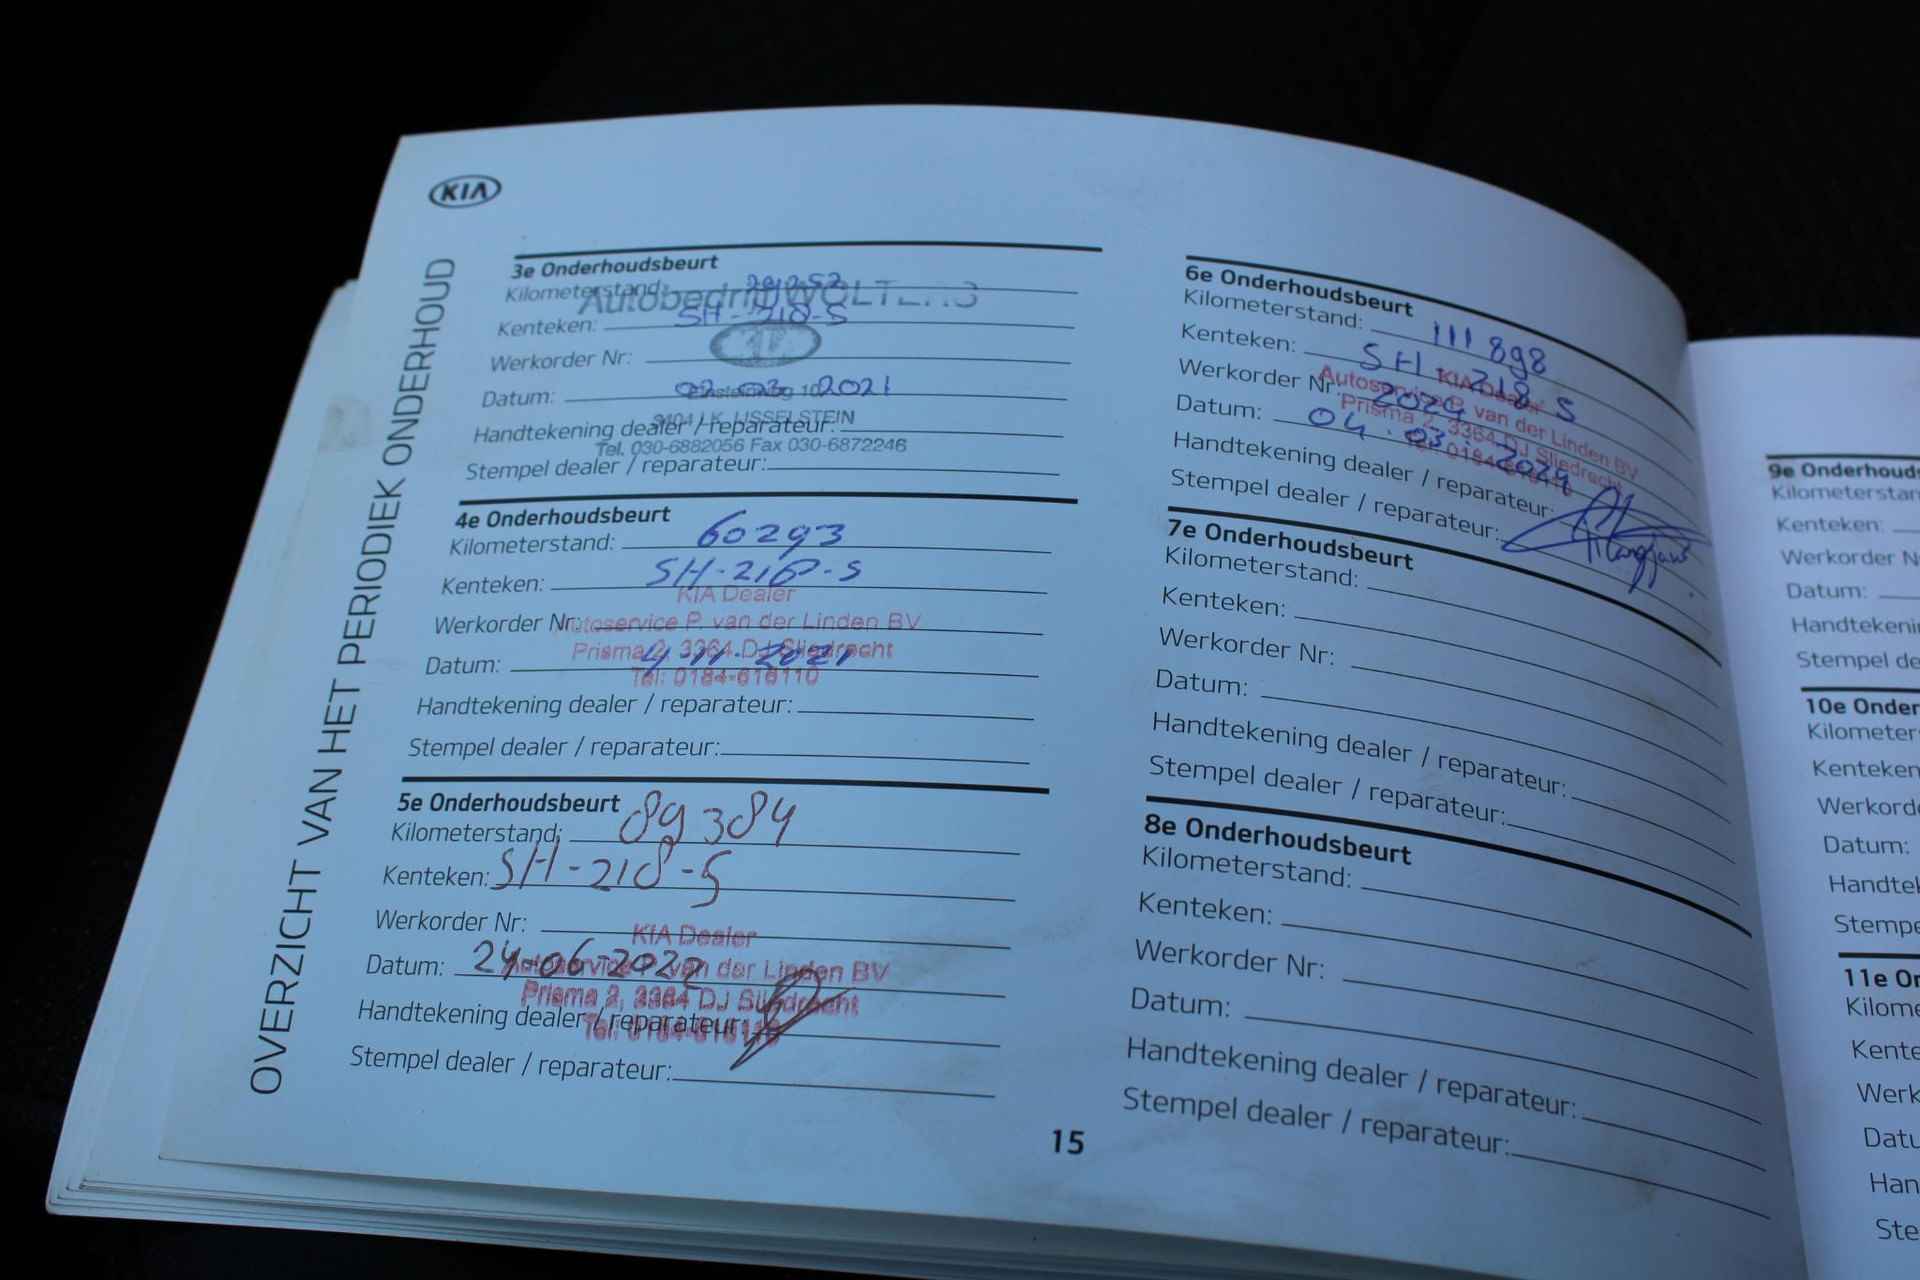 KIA
OVERZICHT VAN HET PERIODIEK ONDERHOUD
3e Onderhoudsbeurt
Kilometerstand:
Autobedrijf WOLTERS
Kenteken: SH-218-S
Werkorder Nr:
Datum: 02-03-2021
3404 LK IJSSELSTEIN
Handtekening dealer / reparateur:
Tel. 030-6882056 Fax 030-6872246
Stempel dealer / reparateur:
4e Onderhoudsbeurt
Kilometerstand: 60293
Kenteken: SH-218-S
KIA Dealer
Werkorder Nr:
Autoservice P. van der Linden BV
Prisma 2, 3364 DJ Sliedrecht
Datum: 4-11-2021
Tel: 0184-616110
Handtekening dealer / reparateur:
Stempel dealer / reparateur:
5e Onderhoudsbeurt
Kilometerstand: 89384
Kenteken: SH-218-S
Werkorder Nr:
KIA Dealer
Datum: 24-06-2022
Autoservice P. van der Linden BV
Prisma 2, 3364 DJ Sliedrecht
Handtekening dealer / reparateur:
Tel: 0184-616110
Stempel dealer / reparateur:
6e Onderhoudsbeurt
Kilometerstand: 111898
Kenteken: SH-218-S
KIA Dealer
Werkorder Nr: 2024
Autoservice P. van der Linden BV
Prisma 2, 3364 DJ Sliedrecht
Datum: 04-03-2024
Tel: 0184-616110
Handtekening dealer / reparateur:
Stempel dealer / reparateur:
7e Onderhoudsbeurt
Kilometerstand:
Kenteken:
Werkorder Nr:
Datum:
Handtekening dealer / reparateur:
Stempel dealer / reparateur:
8e Onderhoudsbeurt
Kilometerstand:
Kenteken:
Werkorder Nr:
Datum:
Handtekening dealer / reparateur:
Stempel dealer / reparateur:
15
9e Onderhouds
Kilometerstan
Kenteken:
Werkorder N
Datum:
Handtekenin
Stempel de
10e Onder
Kilometer
Kenteken
Werkorde
Datum:
Handtek
Stempe
11e On
Kilome
Kente
Werk
Datu
Han
Ste